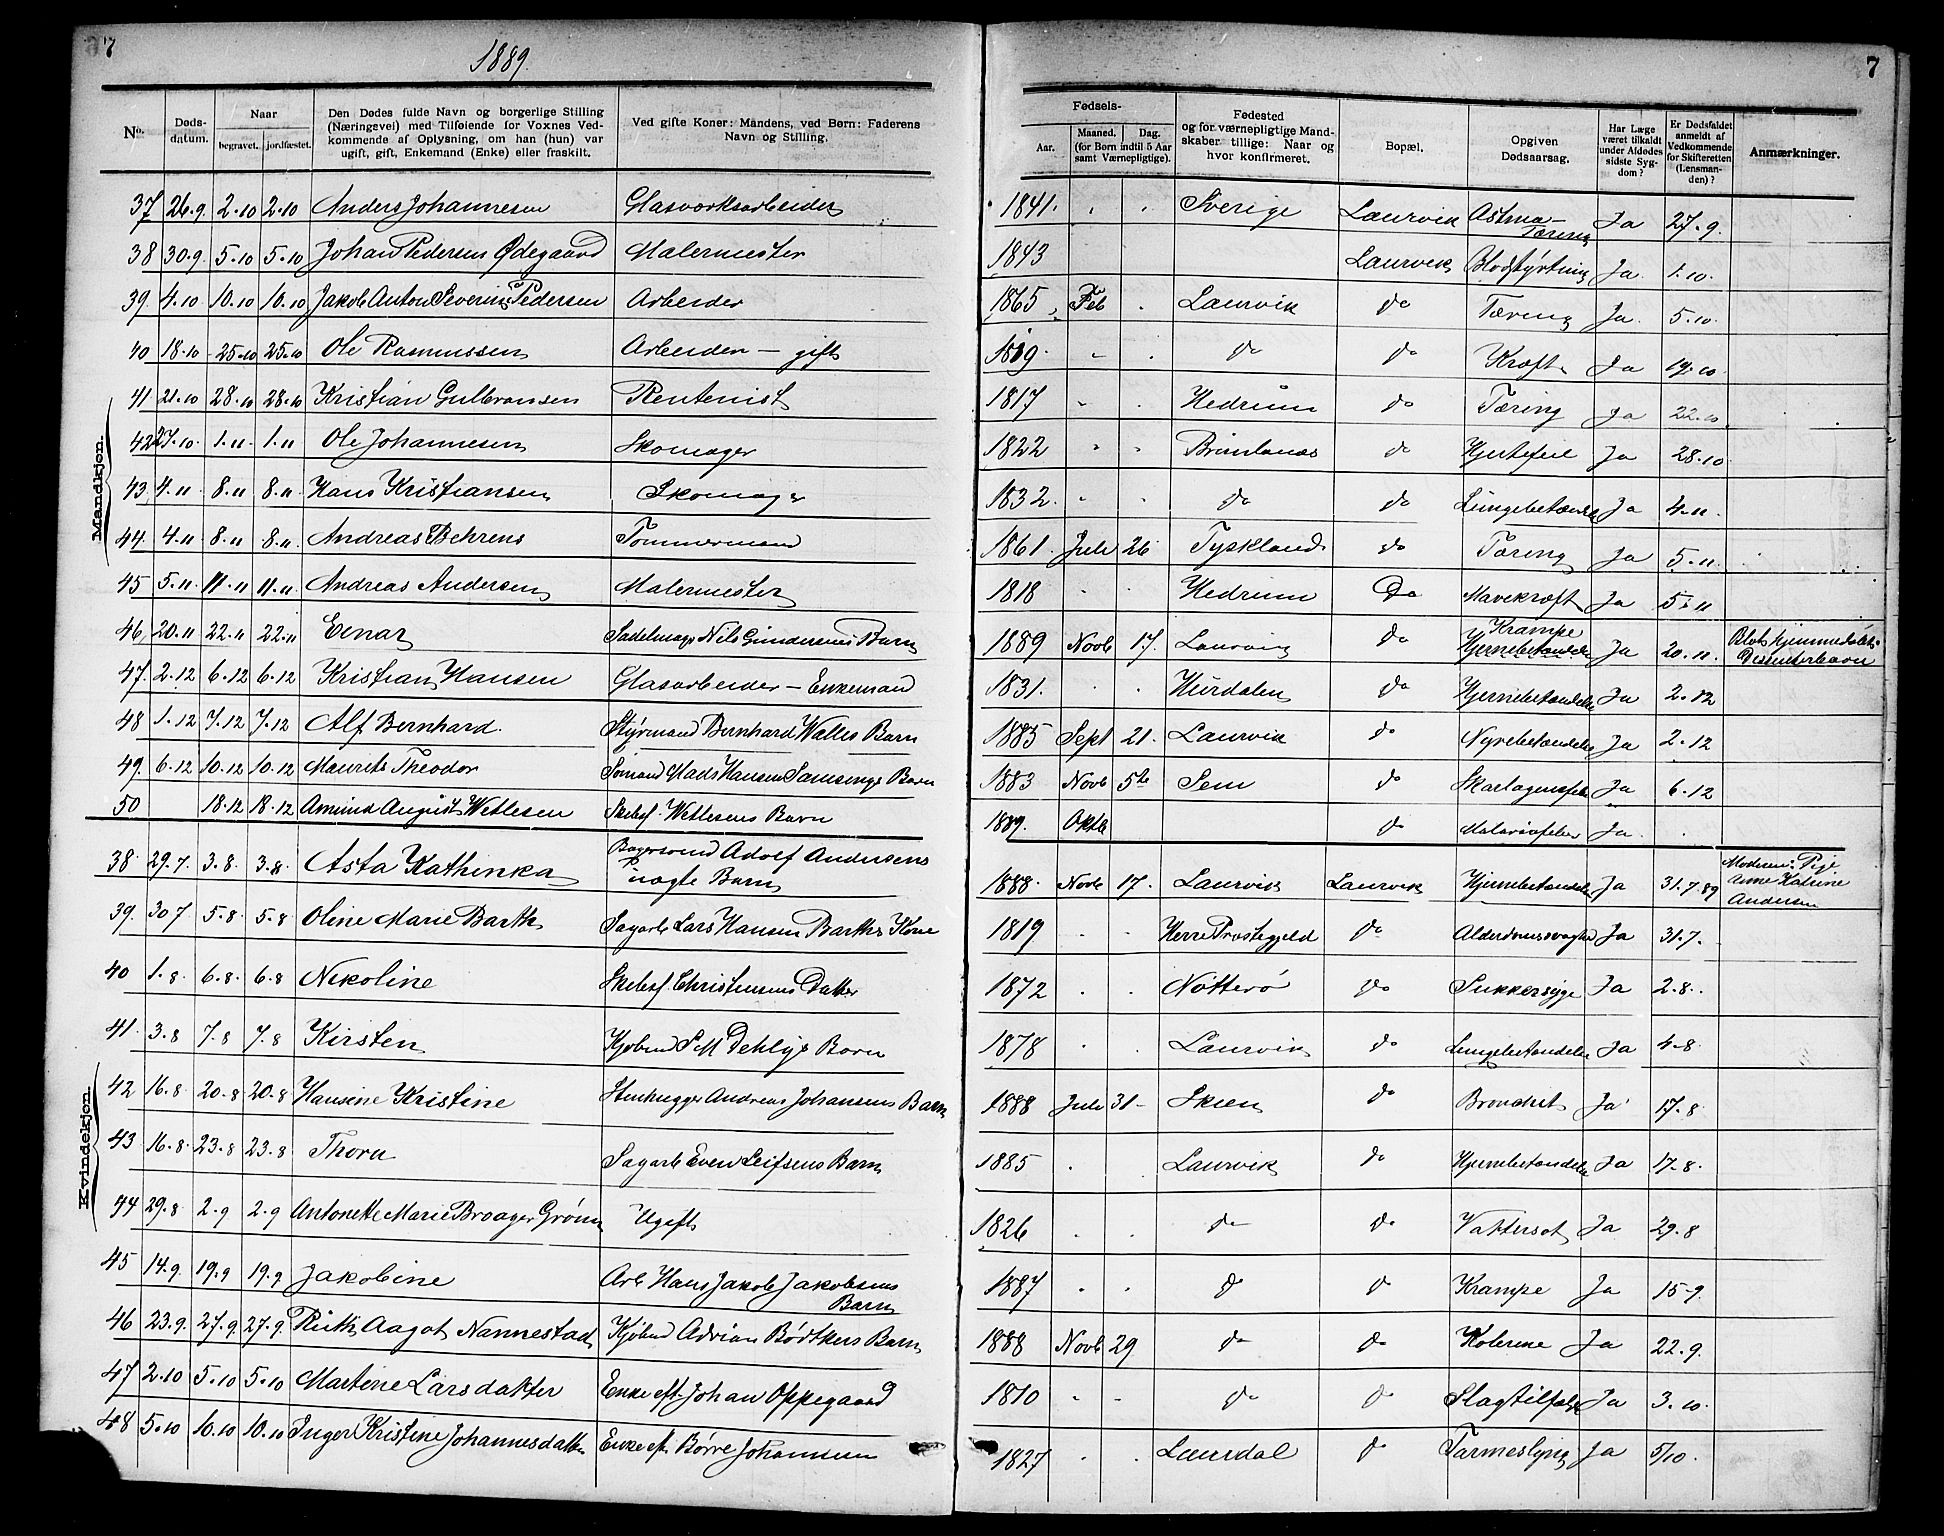 7
1889.
7
No.
Døds-datum.
Naar
begravet. jordfæstet.
Den Dødes fulde Navn og borgerlige Stilling
(Næringsvei) med Tilføiende for Voxnes Ved-
kommende af Oplysning, om han (hun) var
ugift, gift, Enkemand (Enke) eller fraskilt.
Ved gifte Koner: Mandens, ved Børn: Faderens
Navn og Stilling.
Fødsels-
Aar.
Maaned. Dag.
(for Børn indtil 5 Aar
samt Værnepligtige).
Fødested
og for værnepligtige Mand-
skaber tillige: Naar og
hvor konfirmeret.
Bopæl.
Opgiven
Dødsaarsag.
Har Læge
været tilkaldt
under Afdødes
sidste Syg-
dom?
Er Dødsfaldet
anmeldt af
Vedkommende
for Skifteretten
(Lensman-
den)?
Anmærkninger.
Mandkjøn.
37 26.9. 2.10 2.10 Anders Johannesen Glasværksarbeider 1841. Sverige Laurvik Astma-Tæring Ja 27.9.
38 30.9. 5.10 5.10 Johan Pedersens Ødegaard Malermester 1843 Laurvik Blodstyrtning Ja 1.10.
39. 4.10 10.10 10.10 Jakob Anton Severin Pedersen Arbeider 1865 Feb Laurvik do Tæring Ja. 5.10.
40 18.10 25.10 25.10 Ole Rasmussen Arbeider - gift 1819. do do Kræft Ja 19.10
41 21.10 28.10 28.10 Kristian Gulbransen Rentenist 1817 Hedrum do Tæring Ja 22.10
42 27.10. 1.11. 1.11 Ole Johannesen Skomager 1822 Brunlanæs do Hjertefeil Ja 28.10
43 4.11 8.11 8.11 Hans Kristiansen Skomager 1832. do do Lungebetændelse Ja 4.11.
44. 4.11 8.11 8.11. Andreas Behrens Tømmermand 1861. Juli 26 Tyskland do Tæring Ja 5.11.
45 5.11. 11.11 11.11 Andreas Andersen Malermester 1818 Hedrum Do Mavekræft Ja 5.11
46, 20.11 22.11 22.11 Einar Sadelmager Nils Gundersens Barn 1889 Novb 17. Laurvig do Krampe Hjernebetændelse Ja 20.11. Blot hjemmedøbt. Dissenterbarn
47. 2.12 6.12 6.12 Kristian Hansen Glasarbeider - Enkemand 1831. Hurdalen do Hjernebetændelse Ja 2.12
48 1.12 7.12 7.12 Alf Bernhard. Styrmand Bernhard Walles Barn 1885 Sept 21. Laurvik do Nyrebetændelse Ja 2.12
49. 6.12 10.12 10.12 Maurits Theodor Sømand Mads Hansen Samsings Barn 1883 Novb 5te Sem do Skarlagensfeber Ja 6.12
50 18.12 18.12 Amund August Wetlesen Skibsf. Wetlesens Barn 1889. Oktb do Malariafeber Ja.
Kvindekjøn.
38. 29.7. 3.8. 3.8 Asta Kathinka Bagersvend Adolf Andersens uægte Barn 1888. Novb 17. Laurvik Laurvik Hjernebetændelse Ja 31.7.89 Moderen: Pige Anne Katrine Andersen
39. 30.7 5.8. 5.8 Oline Marie Barth Sagarb Lars Hansen Barths Kone 1819 Herre Prestegjeld do Alderdomssvaghed Ja 31.7.
40 1.8 6.8 6.8 Nikoline Skibsf. Christensens Datter 1872 Nøtterø do Sukkersyge Ja 2.8.
41. 3.8 7.8 7.8 Kirsten Kjøbmd S M Dehlys Barn 1878 Laurvik do Lungebetændelse Ja 4.8
42 16.8 20.8 20.8 Hansine Kristine Stenhugger Andreas Johansens Barn 1888 Juli 31 Skien do Bronchit Ja 17.8
43 16.8. 23.8 23.8 Thora Sagarb Even Leifsens Barn 1885 Laurvik do Hjernebetændelse Ja 17.8.
44 29.8 2.9 2.9 Antonette Marie Braager Grønn Ugift 1826 do do Vattersot Ja 29.8
45 14.9. 19.9 19.9 Jakobine Arb Hans Jakob Jakobsens Barn 1887 do do Krampe Ja 15.9.
46 23.9. 27.9. 27.9. Ruth Aagot Nannestad Kjøbmd Adrian Bødtkers Barn 1888 Novb 29 do do Kolerine Ja 22.9.
47 2.10 5.10 5.10 Martine Larsdatter Enke eft. Johan Oppegaard 1810 do do Slagtilfælde Ja 3.10.
48 5.10 10.10 10.10 Inger Kristine Johannesdatter Enke eft. Børre Johansen 1827 Laurdal do Tarmeslyng Ja 5/10.